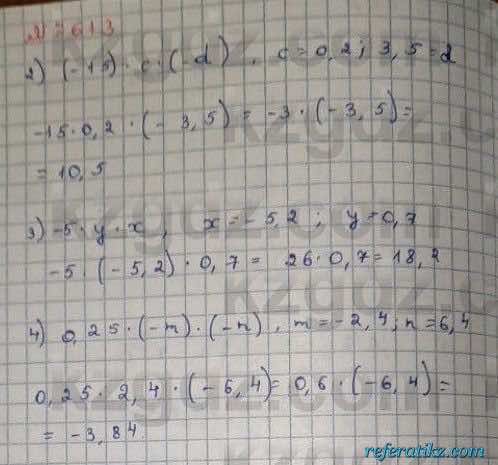 № 613
2) (-15) · c · (-d), c = 0,2; 3,5 = d
-15 · 0,2 · (-3,5) = -3 · (-3,5) =
= 10,5
3) -5 · y · x, x = -5,2; y = 0,7
-5 · (-5,2) · 0,7 = 26 · 0,7 = 18,2
4) 0,25 · (-m) · (-n), m = -2,4; n = 6,4
0,25 · 2,4 · (-6,4) = 0,6 · (-6,4) =
= -3,84.
referatikz.com